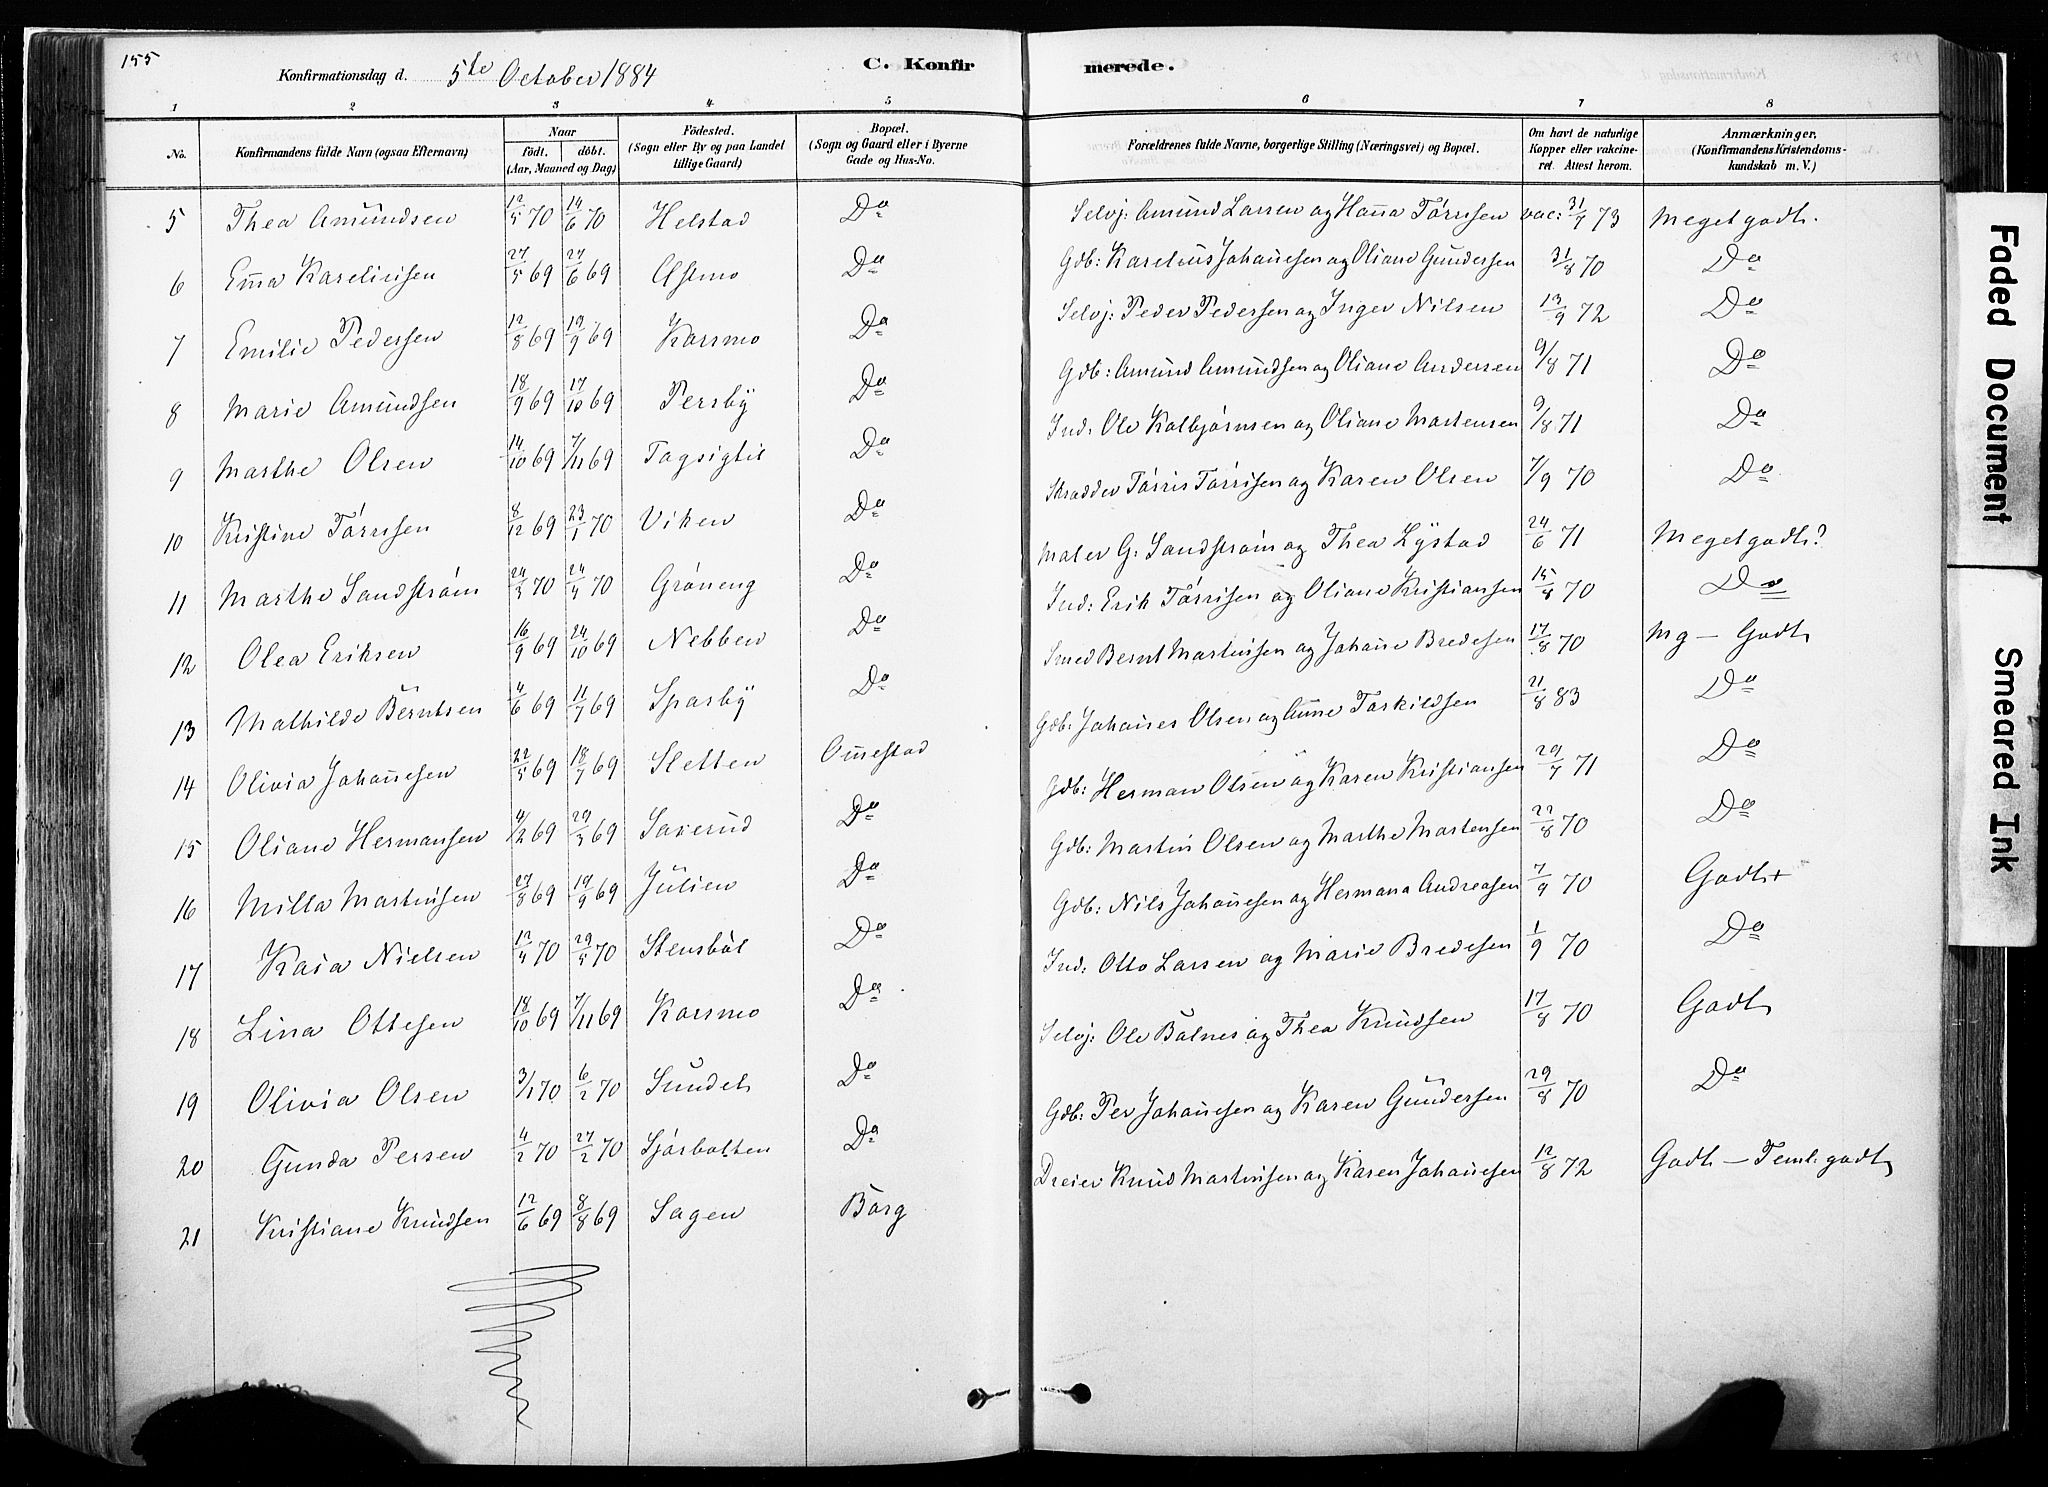 155
Konfirmationsdag d. 5te October 1884
C. Konfirmerede.
1 2 3 4 5 6 7 8
No. Konfirmandens fulde Navn (ogsaa Efternavn) Naar født. døbt. (Aar, Maaned og Dag) Fødested. (Sogn eller By og paa Landet tillige Gaard) Bopæl. (Sogn og Gaard eller i Byerne Gade og Hus-No. Forældrenes fulde Navne, borgerlige Stilling (Næringsvei) og Bopæl. Om havt de naturlige Kopper eller vakcineret. Attest herom. Anmærkninger. (Konfirmandens Kristendomskundskab m. V.)
5 Thea Amundsen 12/5 70 14/6 70 Helstad Do Selvj: Amund Larsen og Hanna Tørrisen vac: 31/7 73 Meget godt.
6 Emma Karelinsen 27/5 69 27/6 69 Astmo Do Gdb: Karelius Johannesen og Oliane Gundersen 31/8 70 Do
7 Emilie Pedersen 12/8 69 19/9 69 Korsmo Do Selvj: Peder Pedersen og Inger Nilsen 13/9 72 Do
8 Marie Amundsen 18/9 69 17/10 69 Persby Do Gdb: Amund Amundsen og Oliane Andersen 9/8 71 Do
9 Marthe Olsen 14/10 69 7/11 69 Tagsigtil Do Ind: Ole Kolbjørnsen og Oliane Martensen 9/8 71 Do
10 Kristine Tørrisen 8/12 69 23/1 70 Viken Do Skrædder Tørris Tørrisen og Karen Olsen 7/9 70 Do
11 Marthe Sandstrøm 24/3 70 24/4 70 Grøneng Do Maler G: Sandstrøm og Thea Lystad 24/6 71 Meget godt?
12 Olea Eriksen 16/9 69 24/10 69 Nebben Do Ind: Erik Tørrisen og Oliane Kristiansen 15/8 70 Do
13 Mathilde Berntsen 4/6 69 11/7 69 Sparby Do Smed Bernt Martinsen og Johanne Bredesen 17/8 70 Mg – Godt
14 Olivia Johannesen 22/5 69 18/7 69 Sletten Omestad Gdb: Johannes Olsen og Anne Torkildsen 21/8 83 Do
15 Oliane Hermansen 4/2 69 29/3 69 Saxerud Do Gdb: Herman Olsen og Karen Kristiansen 20/7 71 Do
16 Milla Martinsen 27/8 69 19/9 69 Julien Do Gdb: Martin Olsen og Marthe Martensen 22/8 70 Do
17 Kaia Nielsen 12/4 70 29/5 70 Stensbøl Do Gdb: Nils Johannesen og Hermana Andreasen 7/9 70 Godt+
18 Lina Ottesen 18/10 69 7/11 69 Korsmo Do Ind: Otto Larsen og Marie Bredesen 1/9 70 Do
19 Olivia Olsen 3/1 70 6/2 70 Sundet Do Selvj: Ole Bølnes og Thea Knudsen 17/8 70 Godt
20 Gunda Persen 4/2 70 27/2 70 Sjørbotten Do Gdb: Per Johannesen og Karen Gundersen 29/8 70 Do
21 Kristiane Knudsen 12/6 69 8/8 69 Sagen Borg Dreier Knud Martinsen og Karen Johannesen 12/8 72 Godt – Teml: godt
Faded Document
Smeared Ink